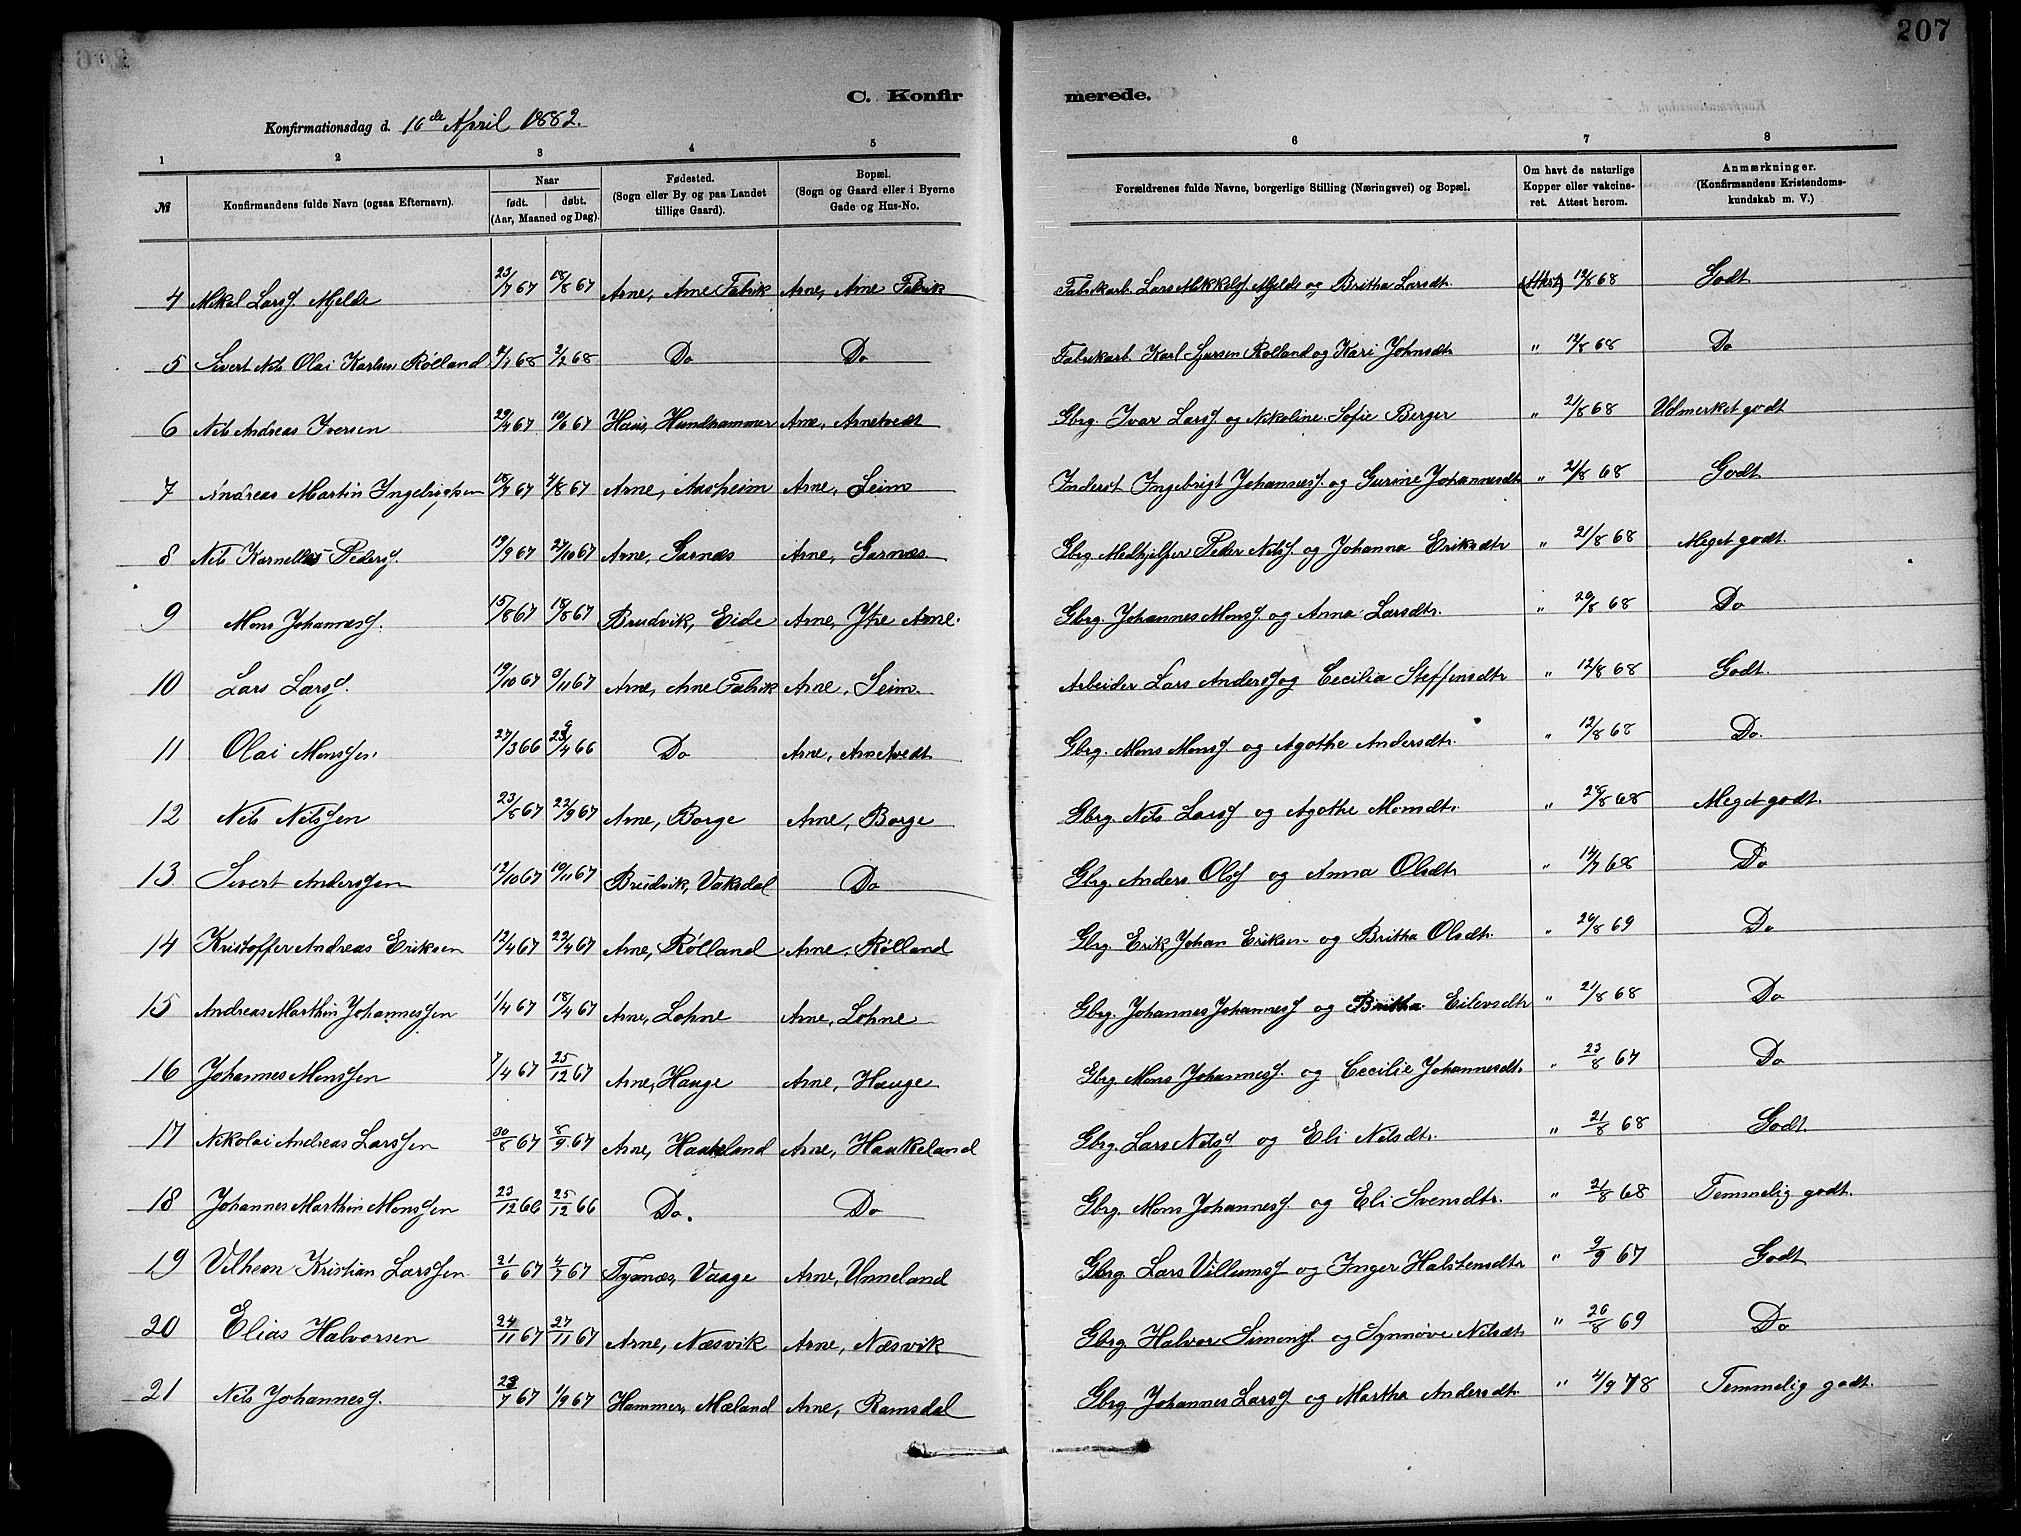 207
C. Konfirmerede.
Konfirmationsdag d. 16de April 1882.
1 2 3 4 5 6 7 8
№ Konfirmandens fulde Navn (ogsaa Efternavn). Naar født. døbt. (Aar, Maaned og Dag). Fødested. (Sogn eller By og paa Landet tillige Gaard). Bopæl. (Sogn og Gaard eller i Byerne Gade og Hus-No. Forældrenes fulde Navne, borgerlige Stilling (Næringsvei) og Bopæl. Om havt de naturlige Kopper eller vakcineret. Attest herom. Anmærkninger. (Konfirmandens Kristendomskundskab m. V.)
4 Mikal Larss. Mjelde 23/7 67 18/8 67 Arne, Arne Fabrik Arne, Arne Fabrik Fabrikarb. Lars Mikkels. Mjelde og Britha Larsdtr. (Attest) 12/8 68 Godt
5 Sivert Nils Olai Karlsen Rølland 12/1 68 2/2 68 Do Do Fabrikarb. Karl Rolland og Kari Johnsdtr " 12/8 68 Do
6 Nils Andreas Iversen 29/4 67 10/6 67 Haus, Hundhammer Arne, Arnetvedt Gbrg. Ivar Larss. og Nikoline Sofie Berger " 21/8 68 Udmerket godt
7 Andreas Martin Ingebrigtsen 18/7 67 4/8 67 Arne, Aasheim Arne, Seim Inderst Ingebrigt Johanness. og Gurine Johannesdtr " 21/8 68 Godt
8 Nils Kornelius Peders. 19/9 67 27/10 67 Arne, Garnæs Arne, Garnæs Gbrg. Medhjelper Peder Nilss. og Johanna Eriksdtr " 21/8 68 Meget godt.
9 Mons Johanness. 15/8 67 18/8 67 Brudvik, Eide Arne, Ytre Arne. Gbrg. Johannes Monss. og Anna Larsdtr. " 20/8 68 Do
10 Lars Larss. 19/10 67 9/11 67 Arne, Arne Fabrik Arne, Seim. Arbeider Lars Anderss. og Cecilia Steffensdtr " 12/8 68 Godt.
11 Olai Monssen. 27/3 66 29/4 66 Do Arne, Arnetvedt Gbrg. Mons Monss. og Agothe Andersdtr. " 12/8 68 Do.
12 Nils Nilssen 23/8 67 22/9 67 Arne, Borge Arne, Borge Gbrg. Nils Larss. og Agothe Monsdtr. " 28/8 68 Meget godt.
13 Sivert Anderssen 12/10 67 10/11 67 Brudvik, Vaksdal Do Gbrg. Anders Olss. og Anna Olsdtr " 14/7 68 Do
14 Kristoffer Andreas Eriksen 12/4 67 22/4 67 Arne, Rølland Arne, Rølland Gbrg. Erik Johan Eriksen og Britha Olsdtr. " 26/8 69 Do
15 Andreas Marthin Johannessen 1/4 67 18/4 67 Arne, Lohne Arne, Lohne Gbrg. Johannes Johanness. og Britha Eilevsdtr " 21/8 68 Do
16 Johannes Monssen 7/4 67 25/12 67 Arne, Hauge Arne, Hauge Gbrg. Mons Johanness. og Cecilie Johannesdtr. " 23/8 67 Do
17 Nikolai Andreas Larssen 30/8 67 8/9 67 Arne, Haukeland Arne, Haukeland Gbrg. Lars Nilss. og Eli Nilsdtr. " 21/8 68 Godt
18 Johannes Marthin Monssen 23/12 66 25/12 66 Do. Do Gbrg. Mons Johanness. og Eli Svensdtr. " 21/8 68 Temmelig godt.
19 Vilhem Kristian Larssen 21/6 67 4/7 67 Tysnæs, Vaage Arne, Unneland Gbrg. Lars Villumss. og Inger Halstensdtr " 9/9 67 Godt
20 Elias Halvorsen 24/11 67 27/11 67 Arne, Næsvik Arne, Næsvik Gbrg. Halvor Simonss. og Synnøve Nilsdtr " 26/8 69 Do
21 Nils Johanness. 23/7 67 1/9 67 Hammer, Mæland Arne, Ramsdal Gbrg. Johannes Larss. og Martha Andersdtr. " 4/9 78 Temmelig godt.